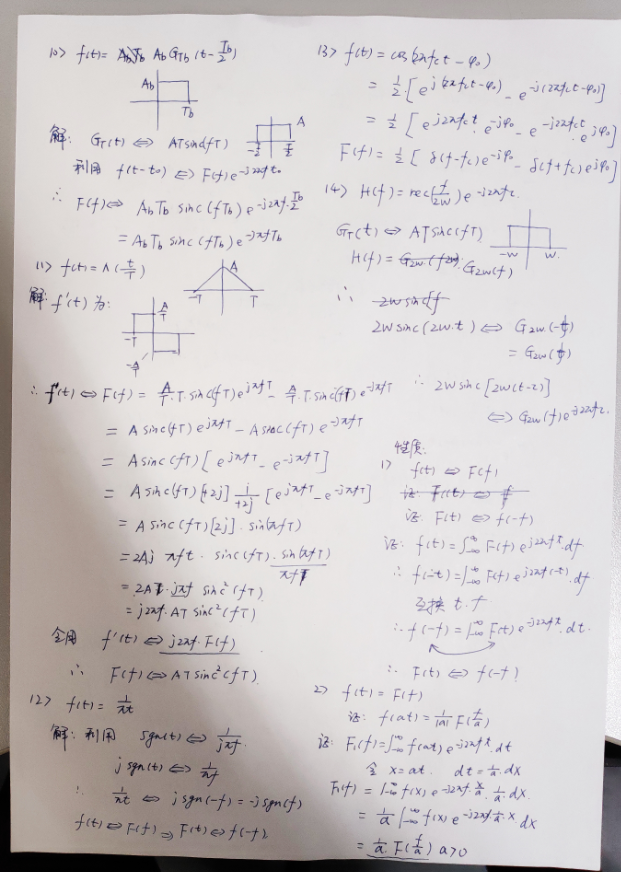 10> f(t) = A_b G_{Tb} (t - T_b/2)
A_b
T_b
解: G_T(t) ⇔ AT sinc(fT)
-T/2 T/2 A
利用 f(t-t₀) ⇔ F(f) e^{-j2πft₀}
∴ F(f) ⇔ A_b T_b sinc(fT_b) e^{-j2πf·T_b/2}
= A_b T_b sinc(fT_b) e^{-jπfT_b}
11> f(t) = Λ(t/T)
A
-T T
解: f'(t) 为:
A/T
-T T
-A/T
∴ f'(t) ⇔ F(f) = A/T · T · sinc(fT) e^{jπfT} - A/T · T · sinc(fT) e^{-jπfT}
= A sinc(fT) e^{jπfT} - A sinc(fT) e^{-jπfT}
= A sinc(fT) [e^{jπfT} - e^{-jπfT}]
= A sinc(fT) [+2j] 1/+2j [e^{jπfT} - e^{-jπfT}]
= A sinc(fT) [2j] · sin(πfT)
= 2Aj πft · sinc(fT) · sin(πfT)/πfT
= 2AT · jπf sinc²(fT)
= j2πf · AT sinc²(fT)
f'(t) ⇔ j2πf · F(f)
∴ F(f) ⇔ AT sinc²(fT)
12> f(t) = 1/πt
解: 利用 sgn(t) ⇔ 1/jπf
j sgn(t) ⇔ 1/πf
∴ 1/πt ⇔ j sgn(-f) = -j sgn(f)
f(t) ⇔ F(f) ⇒ F(t) ⇔ f(-f)
13> f(t) = cos(2πf_c t - φ₀)
= 1/2 · [e^{j(2πf_c t - φ₀)} - e^{-j(2πf_c t - φ₀)}]
= 1/2 [e^{j2πf_c t} · e^{-jφ₀} - e^{-j2πf_c t} · e^{jφ₀}]
F(f) = 1/2 [δ(f-f_c) e^{-jφ₀} - δ(f+f_c) e^{jφ₀}]
14> H(f) = rec(f/2W) e^{-j2πfτ}
G_T(t) ⇔ AT sinc(fT)
-W W
H(f) = G_{2W}(f)
∴
2W sinc(2W·t) ⇔ G_{2W}(-f)
= G_{2W}(f)
∴ 2W sinc[2W(t-τ)]
⇔ G_{2W}(f) e^{-j2πfτ}
性质:
1> f(t) ⇔ F(f)
证: F(t) ⇔ f(-f)
证: f(t) = ∫_{-∞}^{∞} F(f) e^{j2πft} · df
∴ f(-t) = ∫_{-∞}^{∞} F(f) e^{j2πf(-t)} · df
互换 t. f
∴ f(-f) = ∫_{-∞}^{∞} F(t) e^{-j2πft} · dt.
∴ F(t) ⇔ f(-f)
2> f(t) = F(f)
证: f(at) = 1/|a| F(f/a)
证: F₁(f) = ∫_{-∞}^{∞} f(at) e^{-j2πft} · dt
令 x = at. dt = 1/a · dx
F₁(f) = ∫_{-∞}^{∞} f(x) e^{-j2πf·x/a} · 1/a · dx.
= 1/a ∫_{-∞}^{∞} f(x) e^{-j2πf·1/a·x} dx
= 1/a · F(f/a) a>0